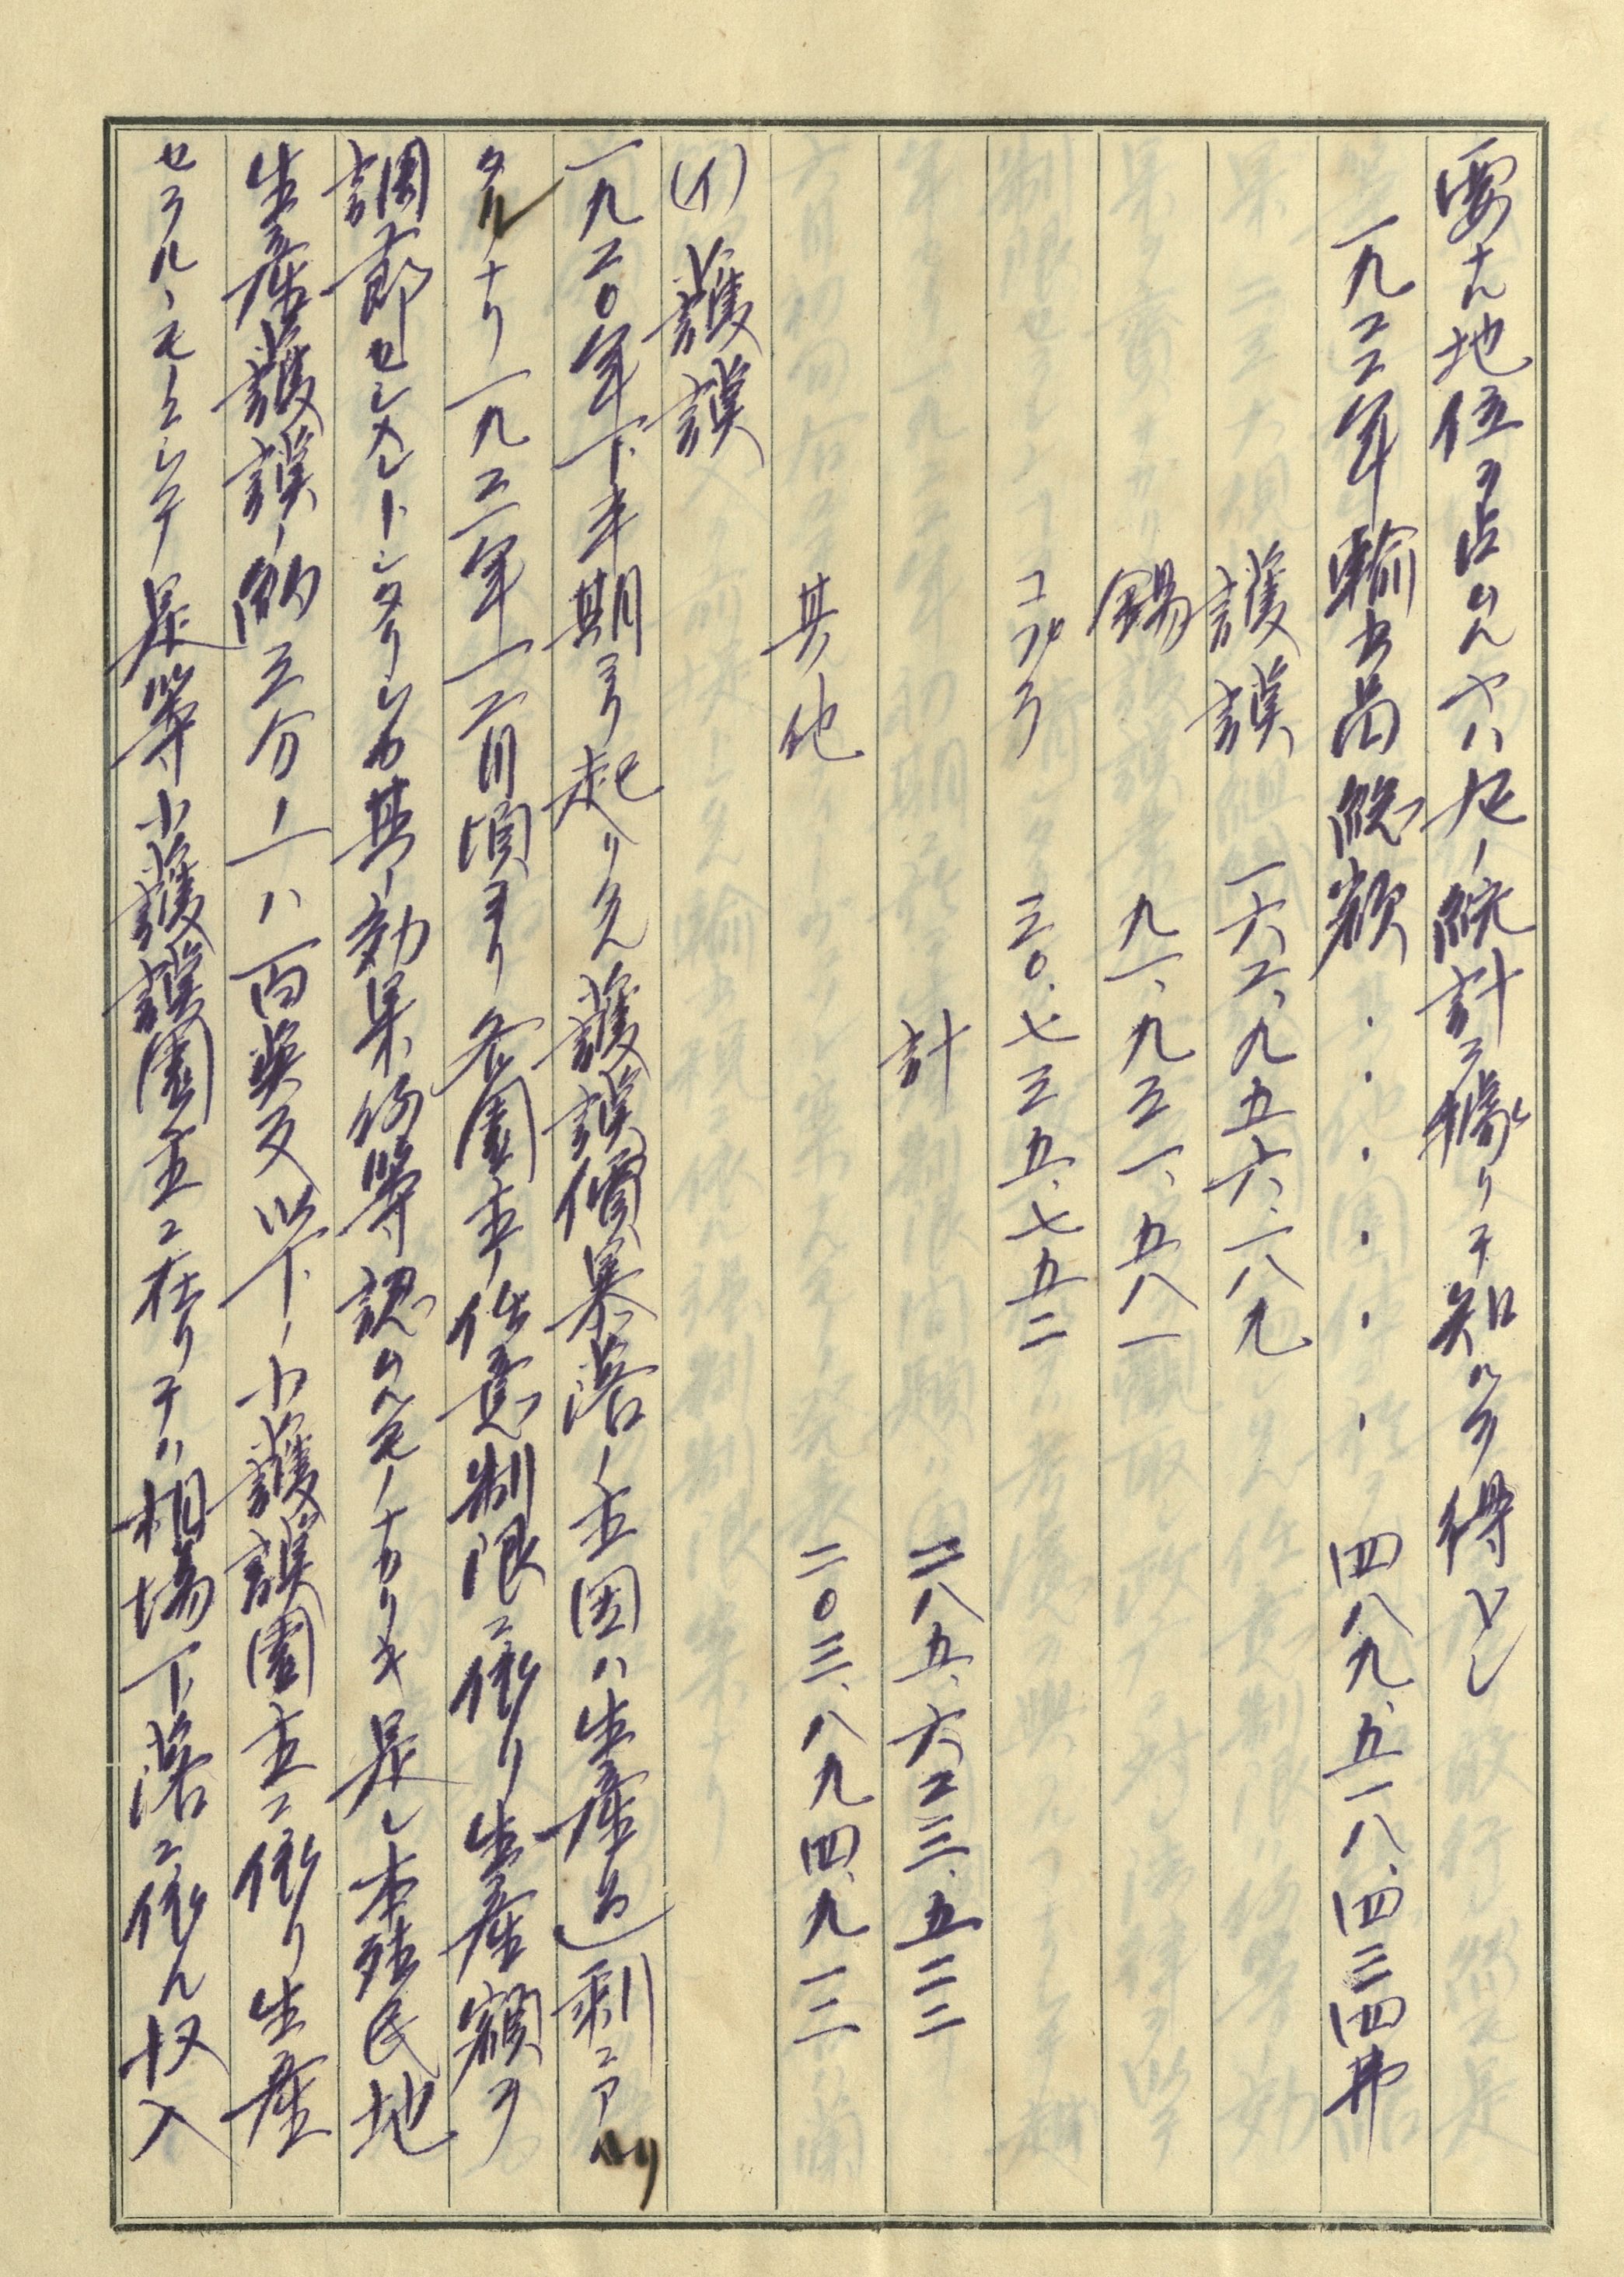 要ナル地位ヲ占ムルヤハ左ノ統計ニ據リテ知ルヲ得ヘシ
一九二二年輸出品總額・・・・・・四八九、五一八、四三四弗
護謨　一六二、九五六、一八九
錫　九一、九三一、五八一
コプラ　三〇、七三五、七五二
計　二八五、六二三、五二二
其他　二〇三、八九四、九一二
(イ)護謨
一九二〇年下半期ヨリ起リタル護謨價暴落ノ主因ハ生産過剰ニアリ
タルナリ一九二一年一二月頃ヨリ各園主ノ任意制限ニ依リ生産額ヲ
調節センメントシタリシカ其ノ効果何等認ムルモノナカリキ是レ本殖民地
生産護謨ノ約三分ノ一ハ百英反以下ノ小護謨園主ニ依リ生産
セラルヽモノニシテ是等小護謨園主ニ在リテハ相場下落ニ依ル収入